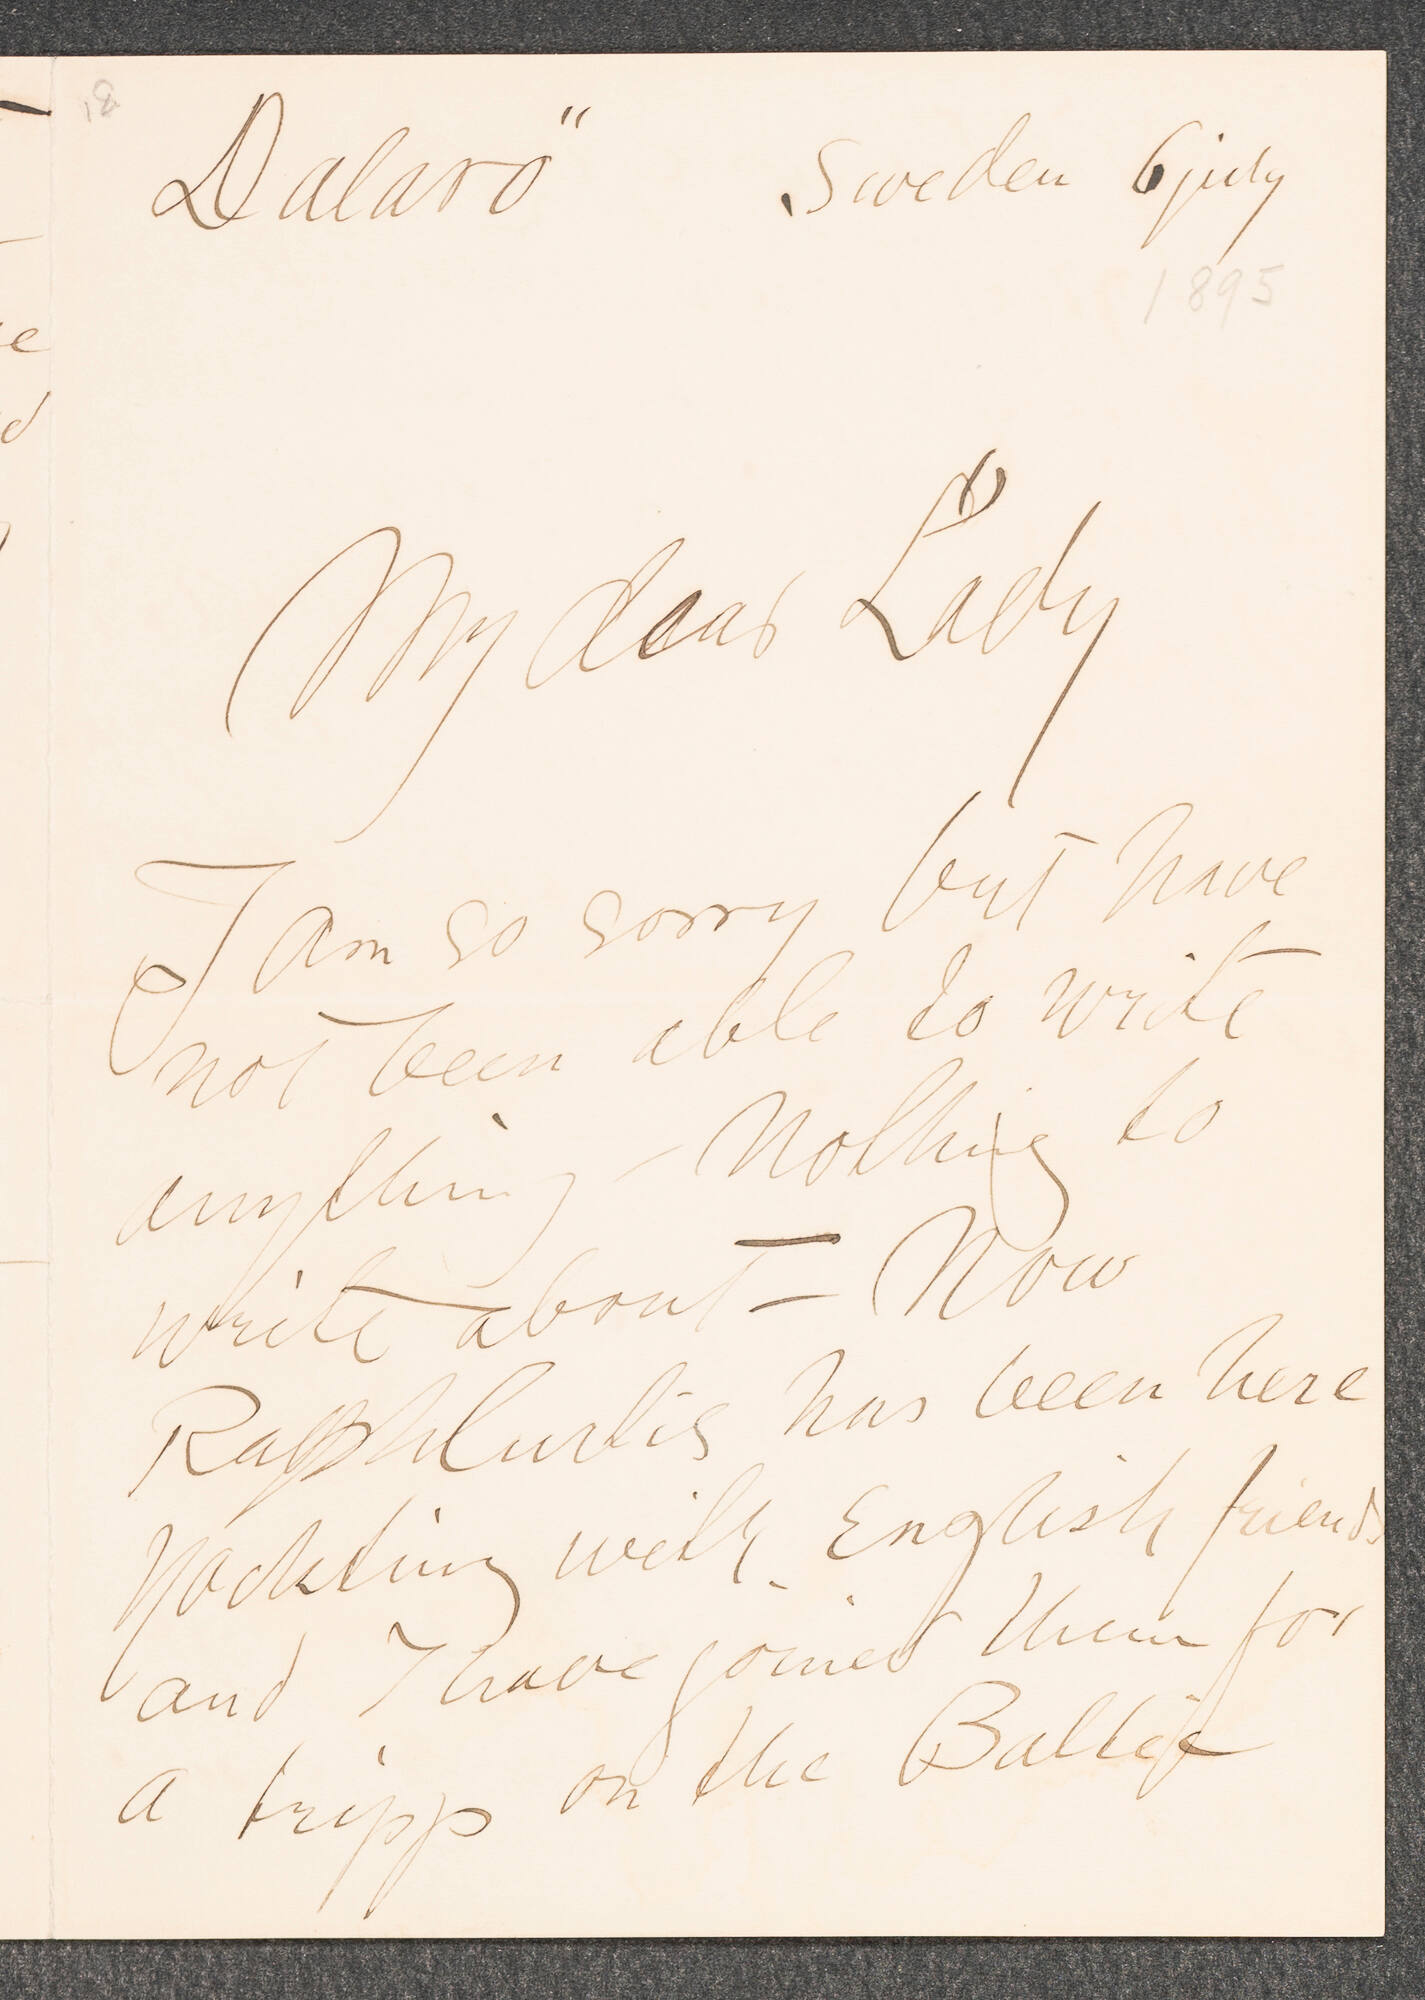 18
Dalarö Sweden 6 july
1895
My dear Lady
I am so sorry but have
not been able to write
anything – Nothing to
write about – Now
Ralph Curtis has been here
yachting with English friends
and I have joined them for
a tripp on the Baltic